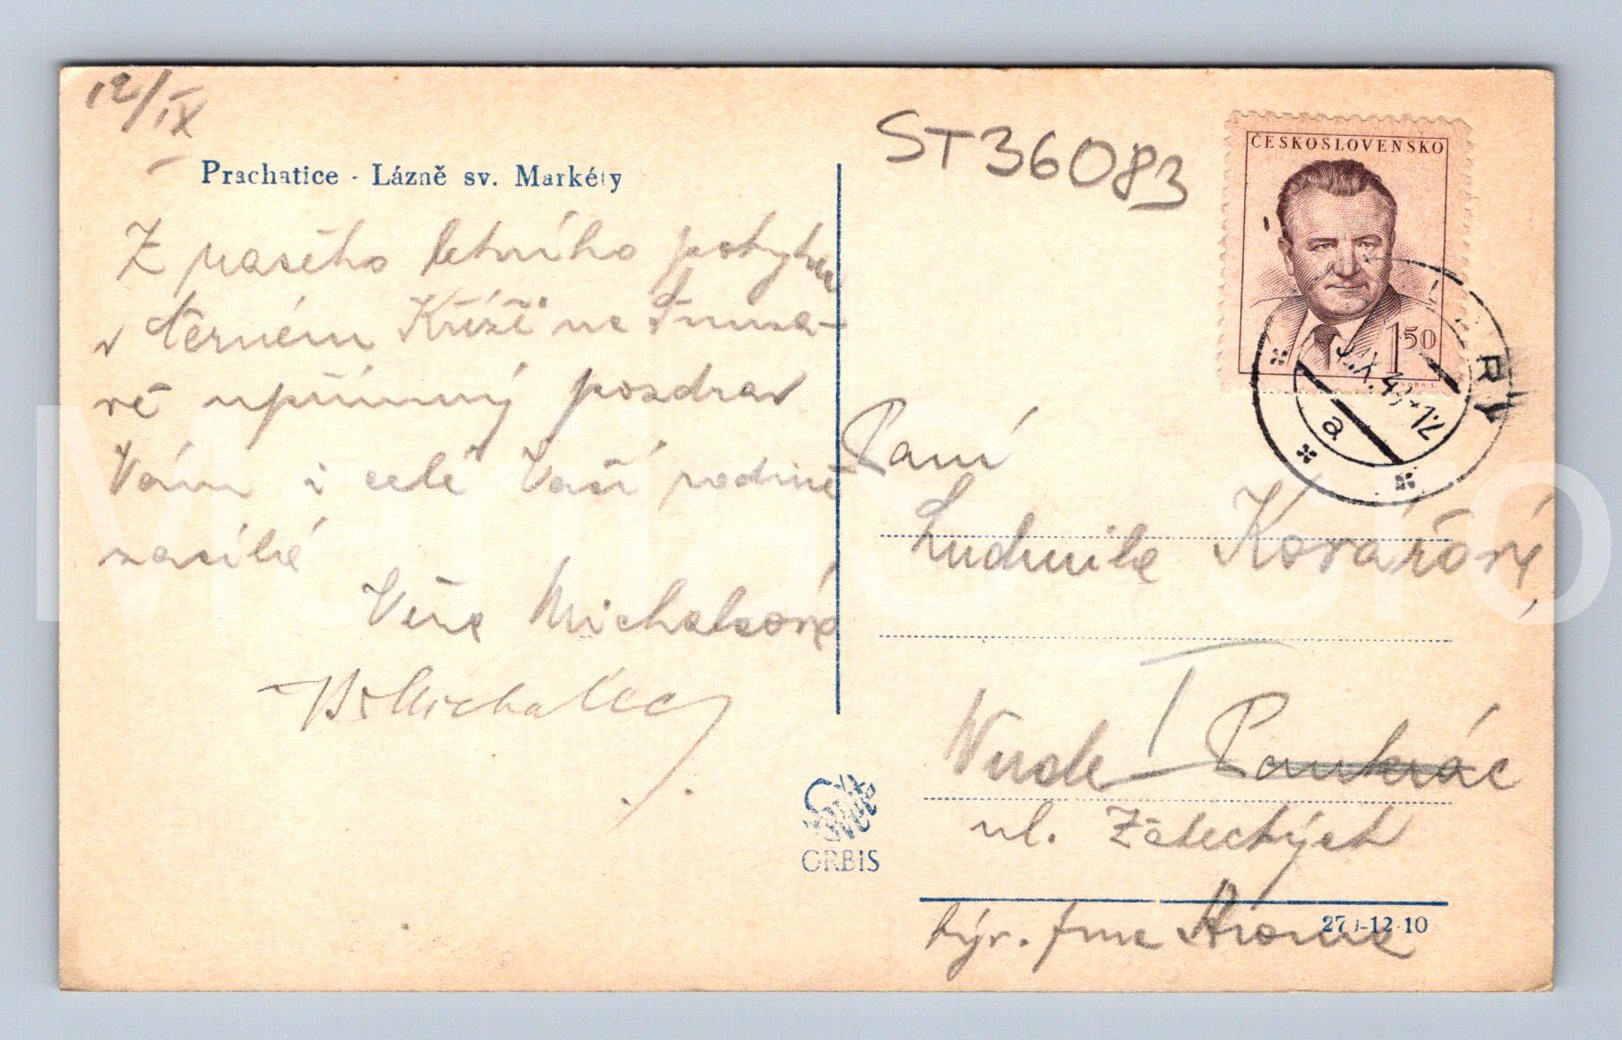 12/IX
Prachatice - Lázně sv. Markéty
Z našeho letního pobytu
v Černém Kříži na Šuma-
vě upřímný pozdrav
Vám i celé Vaší rodině
zasílá
Věra Michalcová
ST36083
ČESKOSLOVENSKO
1.50
IX.48-12
a
Paní
Ludmila Kovářová,
Nusle I Pankrác
ul.
býv. fma
ORBIS